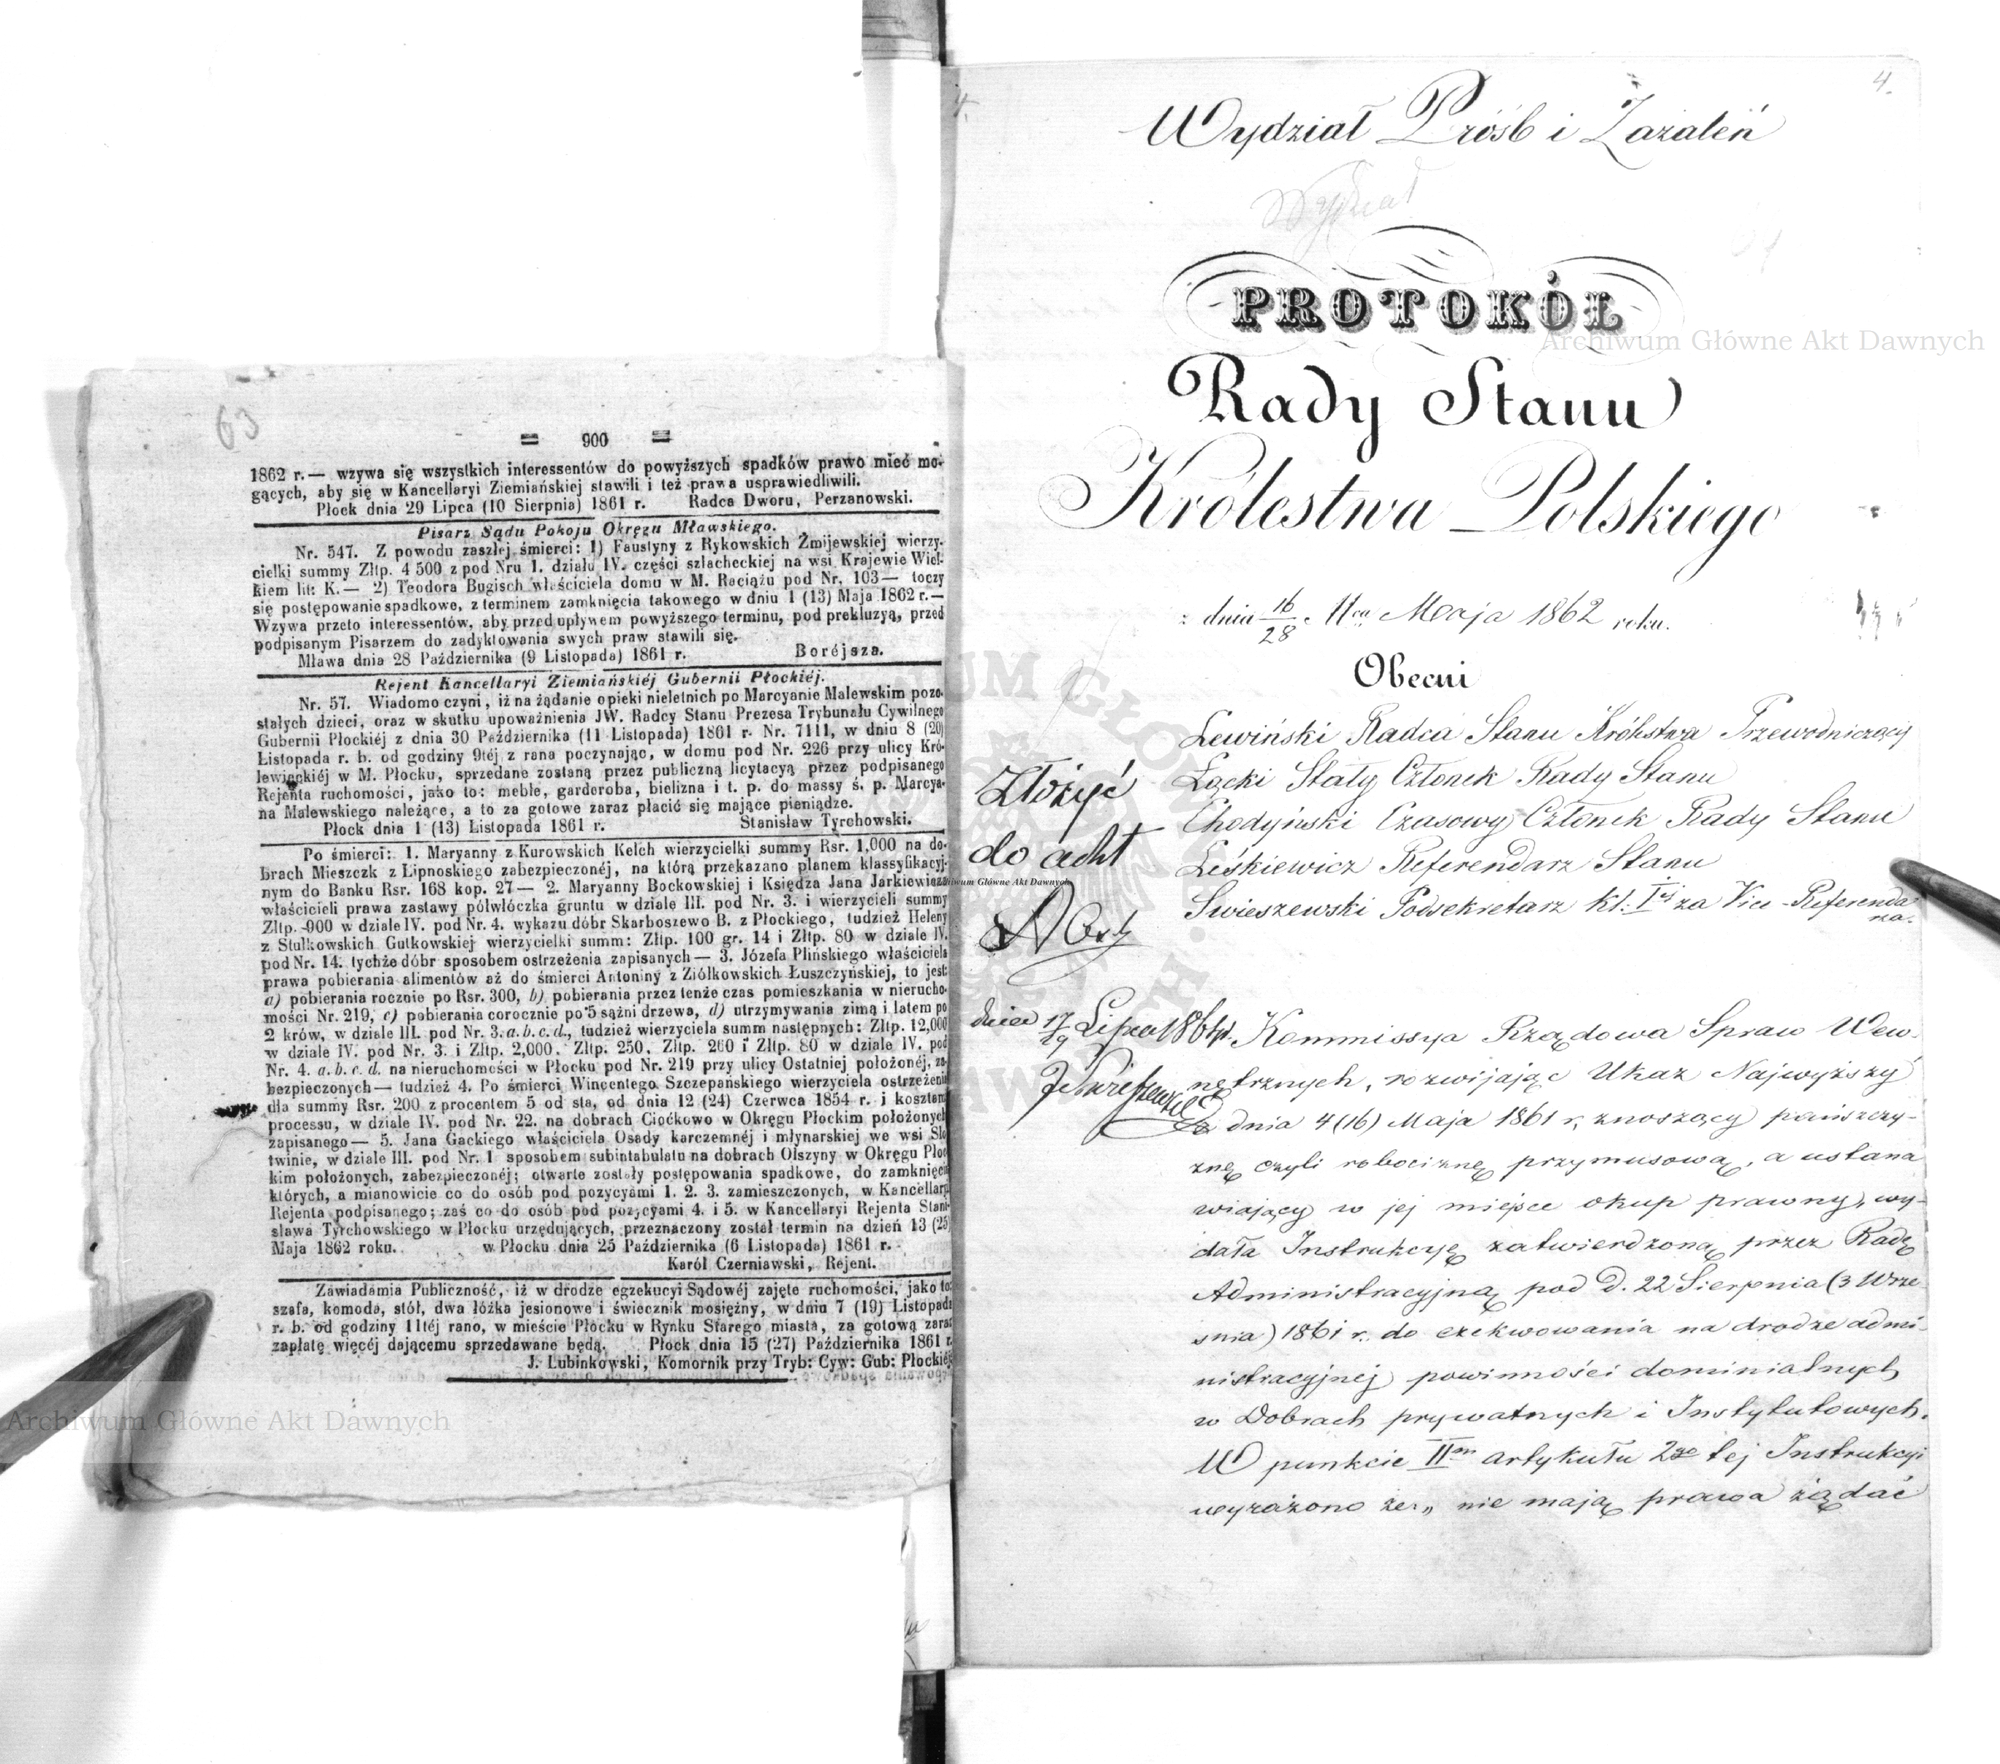 63
= 900 =
1862 r.— wzywa się wszystkich interessentów do powyższych spadków prawo mieć mo-
gących, aby się w Kancellaryi Ziemiańskiej stawili i też prawa usprawiedliwili.
Płock dnia 29 Lipca (10 Sierpnia) 1861 r. Radca Dworu, Perzanowski.
Pisarz Sądu Pokoju Okręgu Mławskiego.
Nr. 547. Z powodu zaszłej śmierci: 1) Faustyny z Rykowskich Żmijewskiej wierzy-
cielki summy Złtp. 4 500 z pod Nru 1. działu IV. części szlacheckiej na wsi Krajewie Wiel-
kiem lit: K.— 2) Teodora Bugisch właściciela domu w M. Raciążu pod Nr. 103— toczy
się postępowanie spadkowe, z terminem zamknięcia takowego w dniu 1 (13) Maja 1862 r.—
Wzywa przeto interessentów, aby przed upływem powyższego terminu, pod prekluzyą, przed
podpisanym Pisarzem do zadyktowania swych praw stawili się.
Mława dnia 28 Października (9 Listopada) 1861 r. Boréjsza.
Rejent Kancellaryi Ziemiańskiéj Gubernii Płockiéj.
Nr. 57. Wiadomo czyni, iż na żądanie opieki nieletnich po Marcyanie Malewskim pozo-
stałych dzieci, oraz w skutku upoważnienia JW. Radcy Stanu Prezesa Trybunału Cywilnego
Gubernii Płockiéj z dnia 30 Października (11 Listopada) 1861 r. Nr. 7111, w dniu 8 (20)
Listopada r. b. od godziny 9téj z rana poczynając, w domu pod Nr. 226 przy ulicy Kró-
lewieckiéj w M. Płocku, sprzedane zostaną przez publiczną licytacyą przez podpisanego
Rejenta ruchomości, jako to: meble, garderoba, bielizna i t. p. do massy ś. p. Marcya-
na Malewskiego należące, a to za gotowe zaraz płacić się mające pieniądze.
Płock dnia 1 (13) Listopada 1861 r. Stanisław Tyrchowski.
Po śmierci: 1. Maryanny z Kurowskich Kelch wierzycielki summy Rsr. 1,000 na do-
brach Mieszczk z Lipnoskiego zabezpieczonéj, na którą przekazano planem klassyfikacyj-
nym do Banku Rsr. 168 kop. 27— 2. Maryanny Bockowskiej i Księdza Jana Jarkiewicza
właścicieli prawa zastawy półwłóczka gruntu w dziale III. pod Nr. 3. i wierzycieli summy
Złtp. 900 w dziale IV. pod Nr. 4. wykazu dóbr Skarboszewo B. z Płockiego, tudzież Heleny
z Stulkowskich Gutkowskiej wierzycielki summ: Złtp. 100 gr. 14 i Złtp. 80 w dziale IV.
pod Nr. 14. tychże dóbr sposobem ostrzeżenia zapisanych— 3. Józefa Plińskiego właściciela
prawa pobierania alimentów aż do śmierci Antoniny z Ziółkowskich Łuszczyńskiej, to jest:
a) pobierania rocznie po Rsr. 300, b) pobierania przez tenże czas pomieszkania w nierucho-
mości Nr. 219, c) pobierania corocznie po 5 sążni drzewa, d) utrzymywania zimą i latem po
2 krów, w dziale III. pod Nr. 3. a. b. c. d., tudzież wierzyciela summ następnych: Złtp. 12,000
w dziale IV. pod Nr. 3. i Złtp. 2,000. Złtp. 250. Złtp. 260 i Złtp. 80 w dziale IV. pod
Nr. 4. a. b. c. d. na nieruchomości w Płocku pod Nr. 219 przy ulicy Ostatniej położonéj, za-
bezpieczonych— tudzież 4. Po śmierci Wincentego Szczepańskiego wierzyciela ostrzeżenia
dla summy Rsr. 200 z procentem 5 od sta, od dnia 12 (24) Czerwca 1854 r. i kosztem
processu, w dziale IV. pod Nr. 22. na dobrach Cioćkowo w Okręgu Płockim położonych
zapisanego— 5. Jana Gackiego właściciela Osady karczemnéj i młynarskiej we wsi Sło-
twinie, w dziale III. pod Nr. 1 sposobem subintabulatu na dobrach Olszyny w Okręgu Płoc-
kim położonych, zabezpieczonéj; otwarte zostały postępowania spadkowe, do zamknięcia
których, a mianowicie co do osób pod pozycyami 1. 2. 3. zamieszczonych, w Kancellaryi
Rejenta podpisanego; zaś co do osób pod pozycyami 4. i 5. w Kancellaryi Rejenta Stani-
sława Tyrchowskiego w Płocku urzędujących, przeznaczony został termin na dzień 13 (25)
Maja 1862 roku. w Płocku dnia 25 Października (6 Listopada) 1861 r.
Karól Czerniawski, Rejent.
Zawiadamia Publiczność, iż w drodze egzekucyi Sądowéj zajęte ruchomości, jako to:
szafa, komoda, stół, dwa łóżka jesionowe i świecznik mosiężny, w dniu 7 (19) Listopada
r. b. od godziny 11téj rano, w mieście Płocku w Rynku Starego miasta, za gotową zaraz
zapłatę więcéj dającemu sprzedawane będą. Płock dnia 15 (27) Października 1861 r.
J. Lubinkowski, Komornik przy Tryb: Cyw: Gub: Płockiéj
4.
Wydział Próśb i Zażaleń
Wydział
PROTOKÓŁ
Rady Stanu
Królestwa Polskiego
z dnia 16/28 Maja 1862 roku.
Obecni
Lewiński Radca Stanu Królestwa Przewodniczący
Łącki Stały Członek Rady Stanu
Chodyński Czasowy Członek Rady Stanu
Leśkiewicz Referendarz Stanu
Swieszewski Podsekretarz kl: I za Vice-Referenda
rza.
Złożyć
do acht
dnia 17/29 Lipca 1864 r.
Kommissya Rządowa Spraw Wew-
nętrznych, rozwijając Ukaz Najwyższy
z dnia 4 (16) Maja 1861 r, znoszący pańszczy-
znę czyli robociznę przymusową, a ustana
wiający w jej miejsce okup prawny, wy-
dała Instrukcyę zatwierdzoną przez Radę
Administracyjną pod D. 22 Sierpnia (3 Wrze
śnia) 1861 r. do exekwowania na drodze admi-
nistracyjnej powinności dominialnych
w Dobrach prywatnych i Instytutowych.
W punkcie IIm artykułu 2go tej Instrukcyi
wyrażono że: „ nie mają prawa żądać
Archiwum Główne Akt Dawnych
Archiwum Główne Akt Dawnych
Archiwum Główne Akt Dawnych